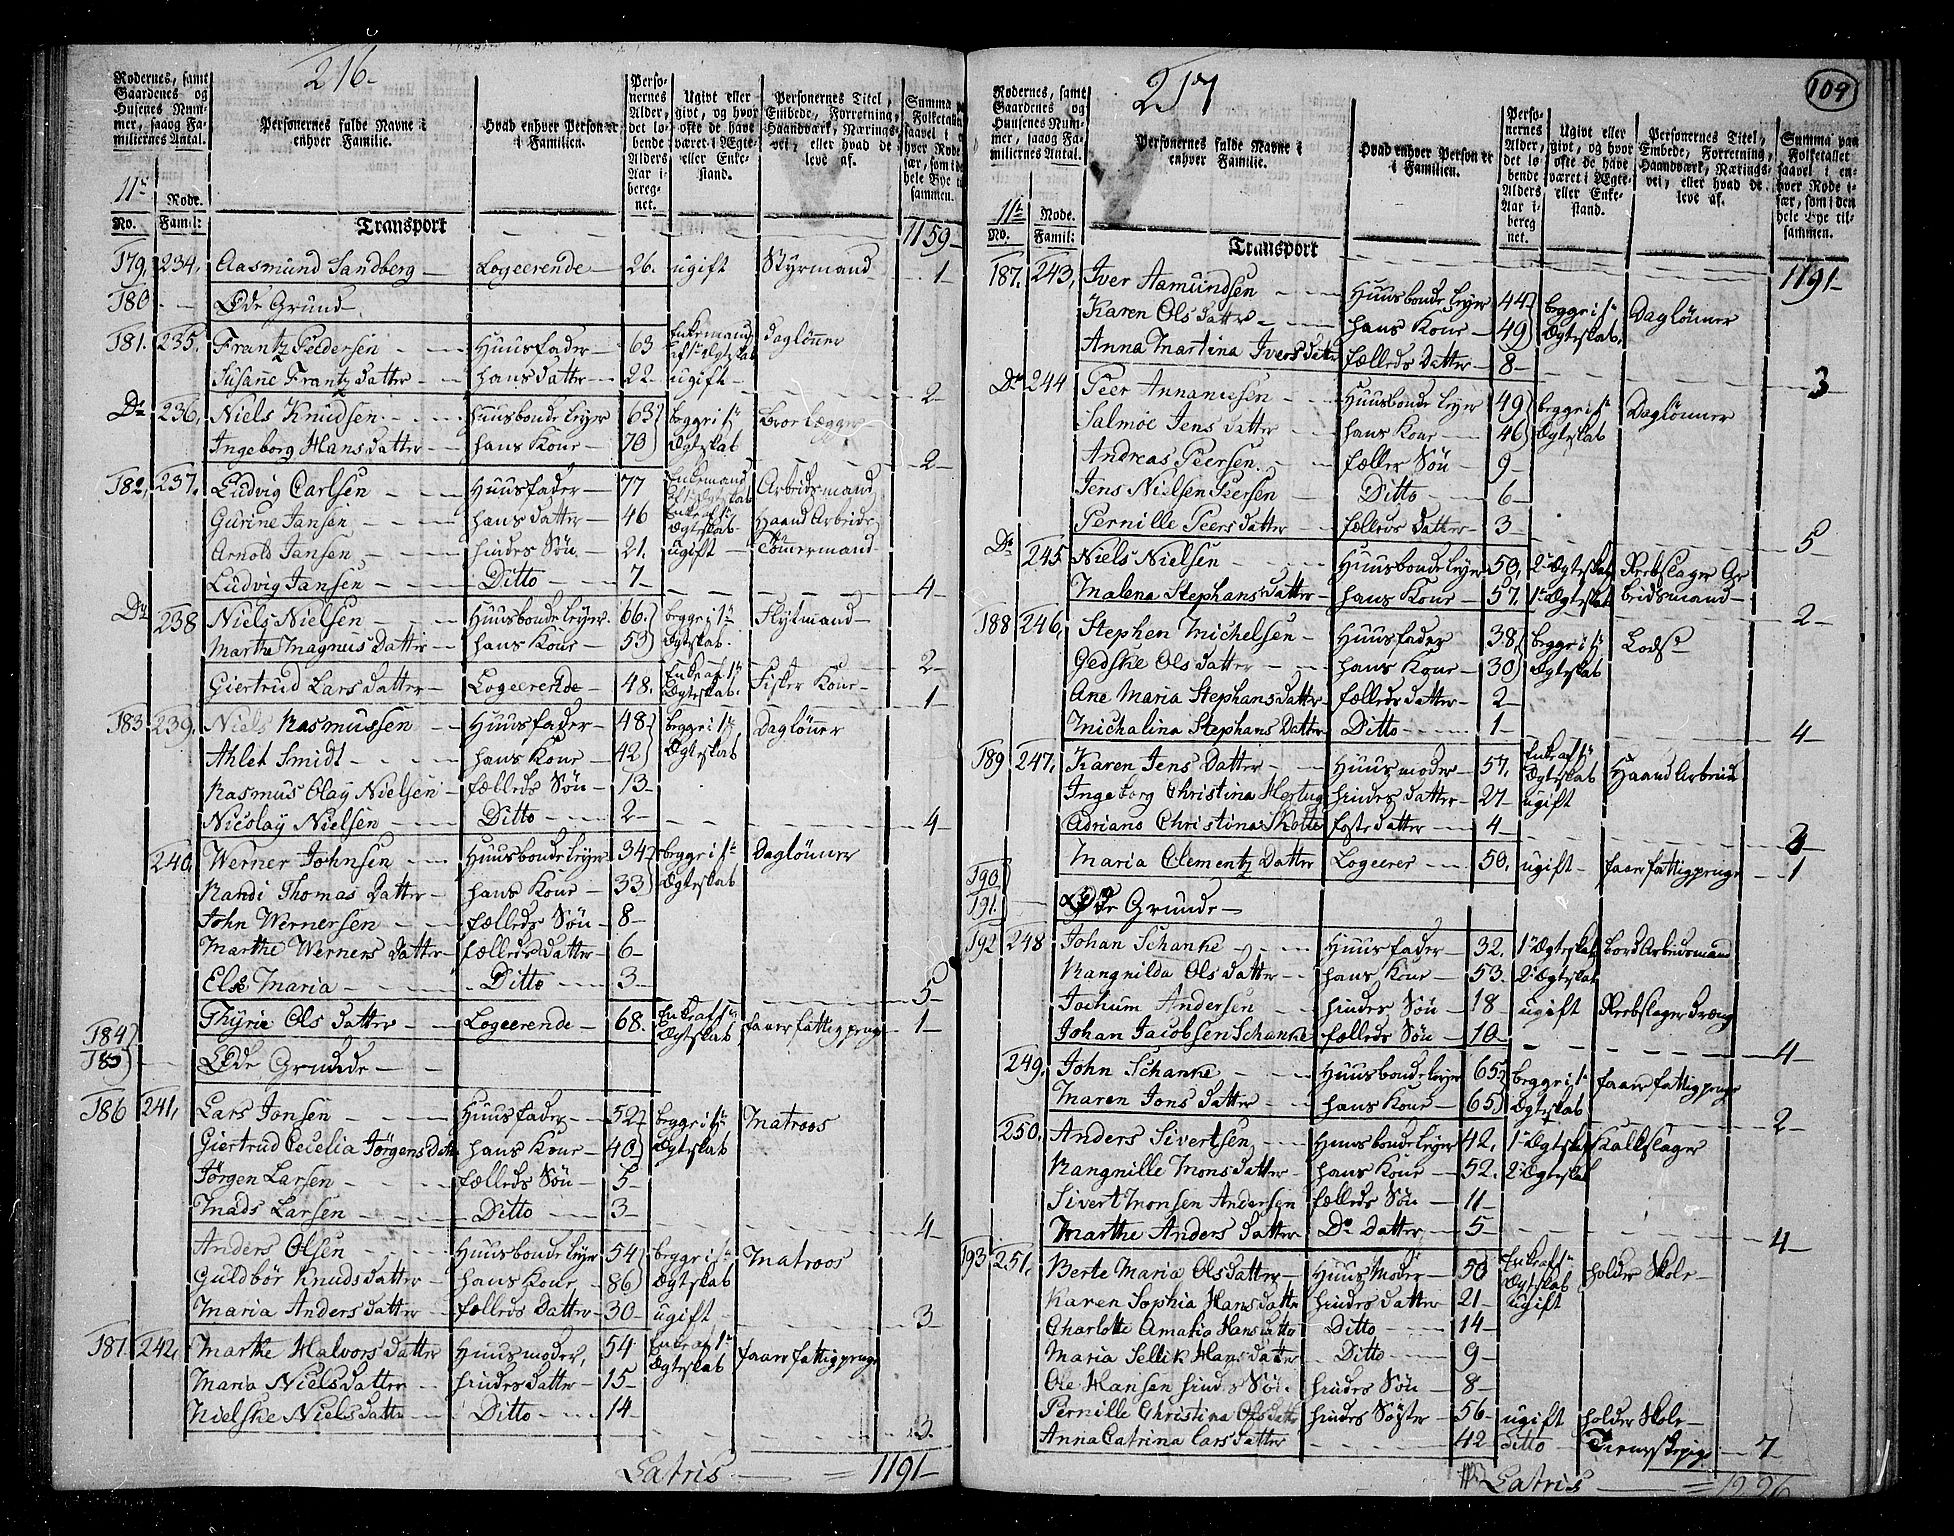 216-
Rodernes, samt Gaardenes og Husenes Nummer, saaog Familiernes Antal.
Personernes fulde Navne i enhver Familie.
Hvad enhver Person er i Familien.
Personernes Alder, det løbende Alders Aar iberegnet.
Ugivt eller givt, og hvor ofte de have været i Ægte- eller Enkestand.
Personernes Titel, Embede, Forretning, Haandværk, Næringsvei, eller hvad de leve af.
Summa paa Folketallet saavel i enhver Rode især, som i den hele Bye tilsammen.
11te Rode.
No. Famil: Transport 1159-
179. 234. Aasmund Sandberg Logeerende 26. ugift Styrmand 1
180 Øde Grund
181. 235. Frantz Peldersen Huusfader 63 Enkemand af 1te Ægteskab Daglønner
Susane Frantz datter hans datter 22 ugift 2
Do 236. Niels Knudsen Huusbonde leyer 63 begge i 1te
Ingeborg Hans datter hans Kone 70 Ægteskab 2
182. 237. Ludvig Carlsen Huusfader 77 Enkemand af 1te Ægteskab Arbeidsmand
Gurine Jansen hans datter 46 Enke af 1te Ægteskab Haand Arbeide
Arnold Jansen hindes Søn 21. ugift Tømermand
Ludvig Jansen Ditto 7 4
Do 238 Niels Nielsen Huusbonde leyer 66. begge i 1te Flytmand
Marthe Magnus Datter hans Kone 53 Ægteskab 2
Giertrud Lars datter Logeerende 48. Enke af 1te Ægteskab Fisker Kone 1
183 239. Niels Rasmussen Huusfader 48 begge i 1te Dagløner
Ahlet Smidt hans Kone 42 Ægteskab
Rasmus Olay Nielsen fælleds Søn 13
Nicolay Nielsen Ditto 2 4
240. Werner Johnsen Huusbonde leyer 34 begge i 1te Daglønner
Randi Thomas Datter hans Kone 33 Ægteskab
John Wernersen fælleds Søn 8
Marthe Werners Datter fælleds datter 6
Else Maria Ditto 3 5
Thyrie Ols datter Logeerende 68. Enke af 1te Ægteskab faaer fattigpenge 1
184)
185) Øde Grunde
186 241. Lars Jonsen Huusfader 52 begge i 1te Matroos
Giertrud Cecelia Jørgens Datter hans Kone 40 Ægteskab
Jørgen Larsen fælleds Søn 5
Mads Larsen Ditto 3 4
Anders Olsen Huusbonde leyer 54 begge i 1te Matroos
Guldbør Knuds datter hans Kone 86 Ægteskab
Maria Anders datter fælleds Datter 30 ugift 3
181. 242. Marthe Halvors datter Huusmoder, 54 Enke af 1te Ægteskab faaer fattigpenge
Maria Niels datter hindes datter 15
Nielske Niels datter Ditto 14 3.
Latris = 1191-
217
109
Rodernes, samt Gaardenes og Huusenes Nummer, saaog Familiernes Antal.
Personernes fulde Navne i enhver Familie.
Hvad enhver Person er i Familien.
Personernes Alder, det løbende Alders Aar iberegnet.
Ugivt eller givt, og hvor ofte de have været i Ægte- eller Enkestand.
Personernes Titel, Embede, Forretning, Haandværk, Næringsvei, eller hvad de leve af.
Summa paa Folketallet saavel i enhver Rode især, som i den hele Bye tilsammen.
11te Rode.
No. Famil: Transport 1191-
187. 243. Iver Aamundsen Huusbonde leyer 44 begge i 1te Daglønner
Karen Ols datter hans Kone 49 Ægteskab.
Anna Martina Ivers datter fælleds Datter 8 3
Do 244 Peer Annaniesen Huusbonde leyer 49 begge i 1te Daglønner
Salmoe Jens datter hans Kone 46 Ægteskab
Andreas Peersen fælles Søn 9
Jens Nielsen Peersen Ditto 6
Pernille Peers datter fælleds datter 3 5
Do 245 Niels Nielsen Huusbonde leyer 50. 2 Ægteskab Reebslager Ar
Malena Stephans datter hans Kone 57. 1te Ægteskab beidsmand 2
188 246. Stephen Michelsen Huusfader 38. begge i 1te Lods
Gedske Ols datter hans Kone 30 Ægteskab
Ane Maria Stephans datter fælleds datter 2
Michalina Stephans Datter Ditto 1 4
189 247. Karen Jens Datter Huusmoder 57. Enke af 1te Ægteskab Haand Arbeide
Ingeborg Christina Hertug hindes datter 27 ugift
Adriane Christina Skotte foste datter 4 3
Maria Clementz Datter Logeerer 50. ugift faaer fattigpenge 1
190)
191. Øde Grunde
192 248 Johan Schanke Huusfader 32. 1te Ægteskab bord Arbeidsmand
Rangnilda Ols datter hans Kone 53. 2 Ægteskab
Jochum Andersen hindes Søn 18 ugift Reebslager dreng
Johan Jacobsen Schanke fælleds Søn 10 4
249. John Schanke Huusbonde leyer 65 begge i 1te faaer fattigpenge
Maren Jons datter hans Kone 65 Ægteskab 2
250. Anders Sivertsen Huusbonde leyer 42. 1te Ægteskab Kalkslager
Rangnille Mons datter hans Kone 52. 2 Ægteskab
Sivert Monsen Andersen fælleds Søn 11
Marthe Anders datter Do Datter 5 4
193 251. Berte Maria Ols datter Huus Moder 50 Enke af 1te Ægteskab holder Skole
Karen Sophia Hans datter hindes datter 21 ugift
Charlotte Amalia Hans datter Ditto 14
Maria Sellik Hans datter Ditto 9
Ole Hansen hindes Søn hindes Søn 8
Pernille Christina Ols datter hindes Søster 56 ugift holder Skole
Anna Catrina Lars datter 42 Ditto Tienestepige 7
Latris = 1226